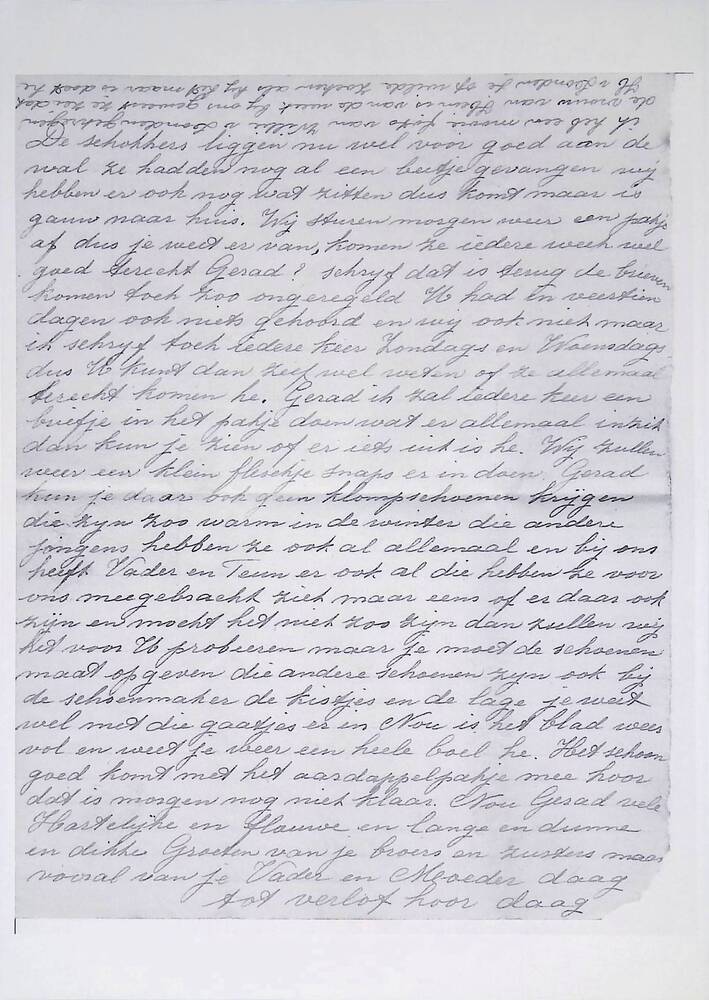 ik heb een mooie foto van Willie v Londen gekregen
de vrouw van Hein is van de week bij ons geweest ze zei dat
v Londen je of wilde zoeken als hij kist maar is doet he
De schokkers liggen nu wel voor goed aan de
wal ze hadden nog al een beetje gevangen wij
hebben er ook nog wat zitten dus komt maar is
gauw naar huis. Wij sturen morgen weer een pakje
af dus je weet er van, komen ze iedere week wel
goed terecht Gerad? schryf dat is terug de brieven
komen toch zoo ongeregeld U had in veertien
dagen ook niets gehoord en wij ook niet maar
ik schryf toch iedere keer Zondags en Woensdags
dus U kunt dan zelf wel weten of ze allemaal
terecht komen he. Gerad ik zal iedere keer een
briefje in het pakje doen wat er allemaal in zit
dan kun je zien of er iets uit is he. Wij zullen
weer een klein fleschje snaps er in doen. Gerad
kun je daar ook geen klompschoenen krijgen
die zyn zoo warm in de winter die andere
jongens hebben ze ook al allemaal en bij ons
heeft Vader en Teun er ook al die hebben ze voor
ons meegebracht ziet maar eens of er daar ook
zijn en mocht het niet zoo zijn dan zullen wij
het voor U probeeren maar je moet de schoenen
maat opgeven die andere schoenen zyn ook bij
de schoenmaker de kistjes en de lage je weet
wel met die gaatjes er in Nou is het blad weer
vol en weet je weer een heele boel he. Het schoon
goed komt met het aardappelpakje mee hoor
dat is morgen nog niet klaar. Nou Gerad vele
Hartelijke en flauwe en lange en dunne
en dikke Groeten van je broers en zusters maar
vooral van je Vader en Moeder daag
tot verlof hoor daag